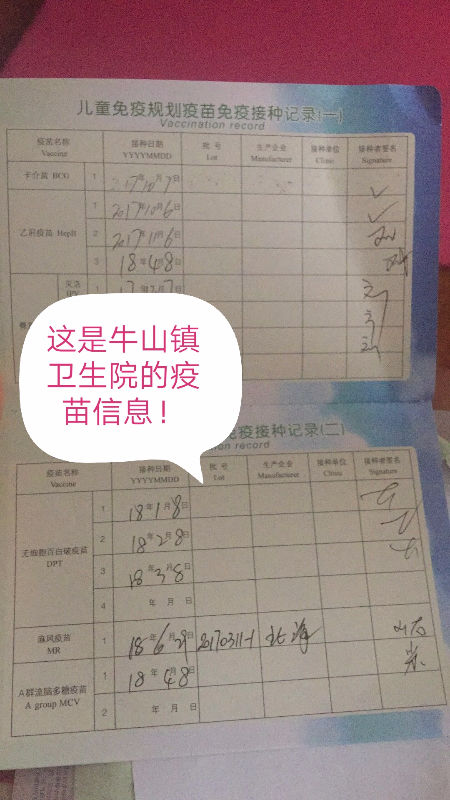 儿童免疫规划疫苗免疫接种记录(一)
Vaccination record
疫苗名称 接种日期 批 号 生产企业 接种单位 接种者签名
Vaccine YYYYMMDD Lot Manufacturer Clinic Signature
卡介苗 BCG 1 17年10月7日
1 2017年10月6日
乙肝疫苗 HepB 2 2017年11月6日
3 18年4月8日
灭活 1
这是牛山镇
卫生院的疫
苗信息！
免疫接种记录(二)
ation record
疫苗名称 接种日期 批 号 生产企业 接种单位 接种者签名
Vaccine YYYYMMDD Lot Manufacturer Clinic Signature
1 18年1月8日
无细胞百白破疫苗 2 18年2月8日
DPT 3 18年3月8日
4 年 月 日
麻风疫苗 1 18年6月29日 20170311-1
MR
A群流脑多糖疫苗 1 18年4月8日
A group MCV 2 年 月 日